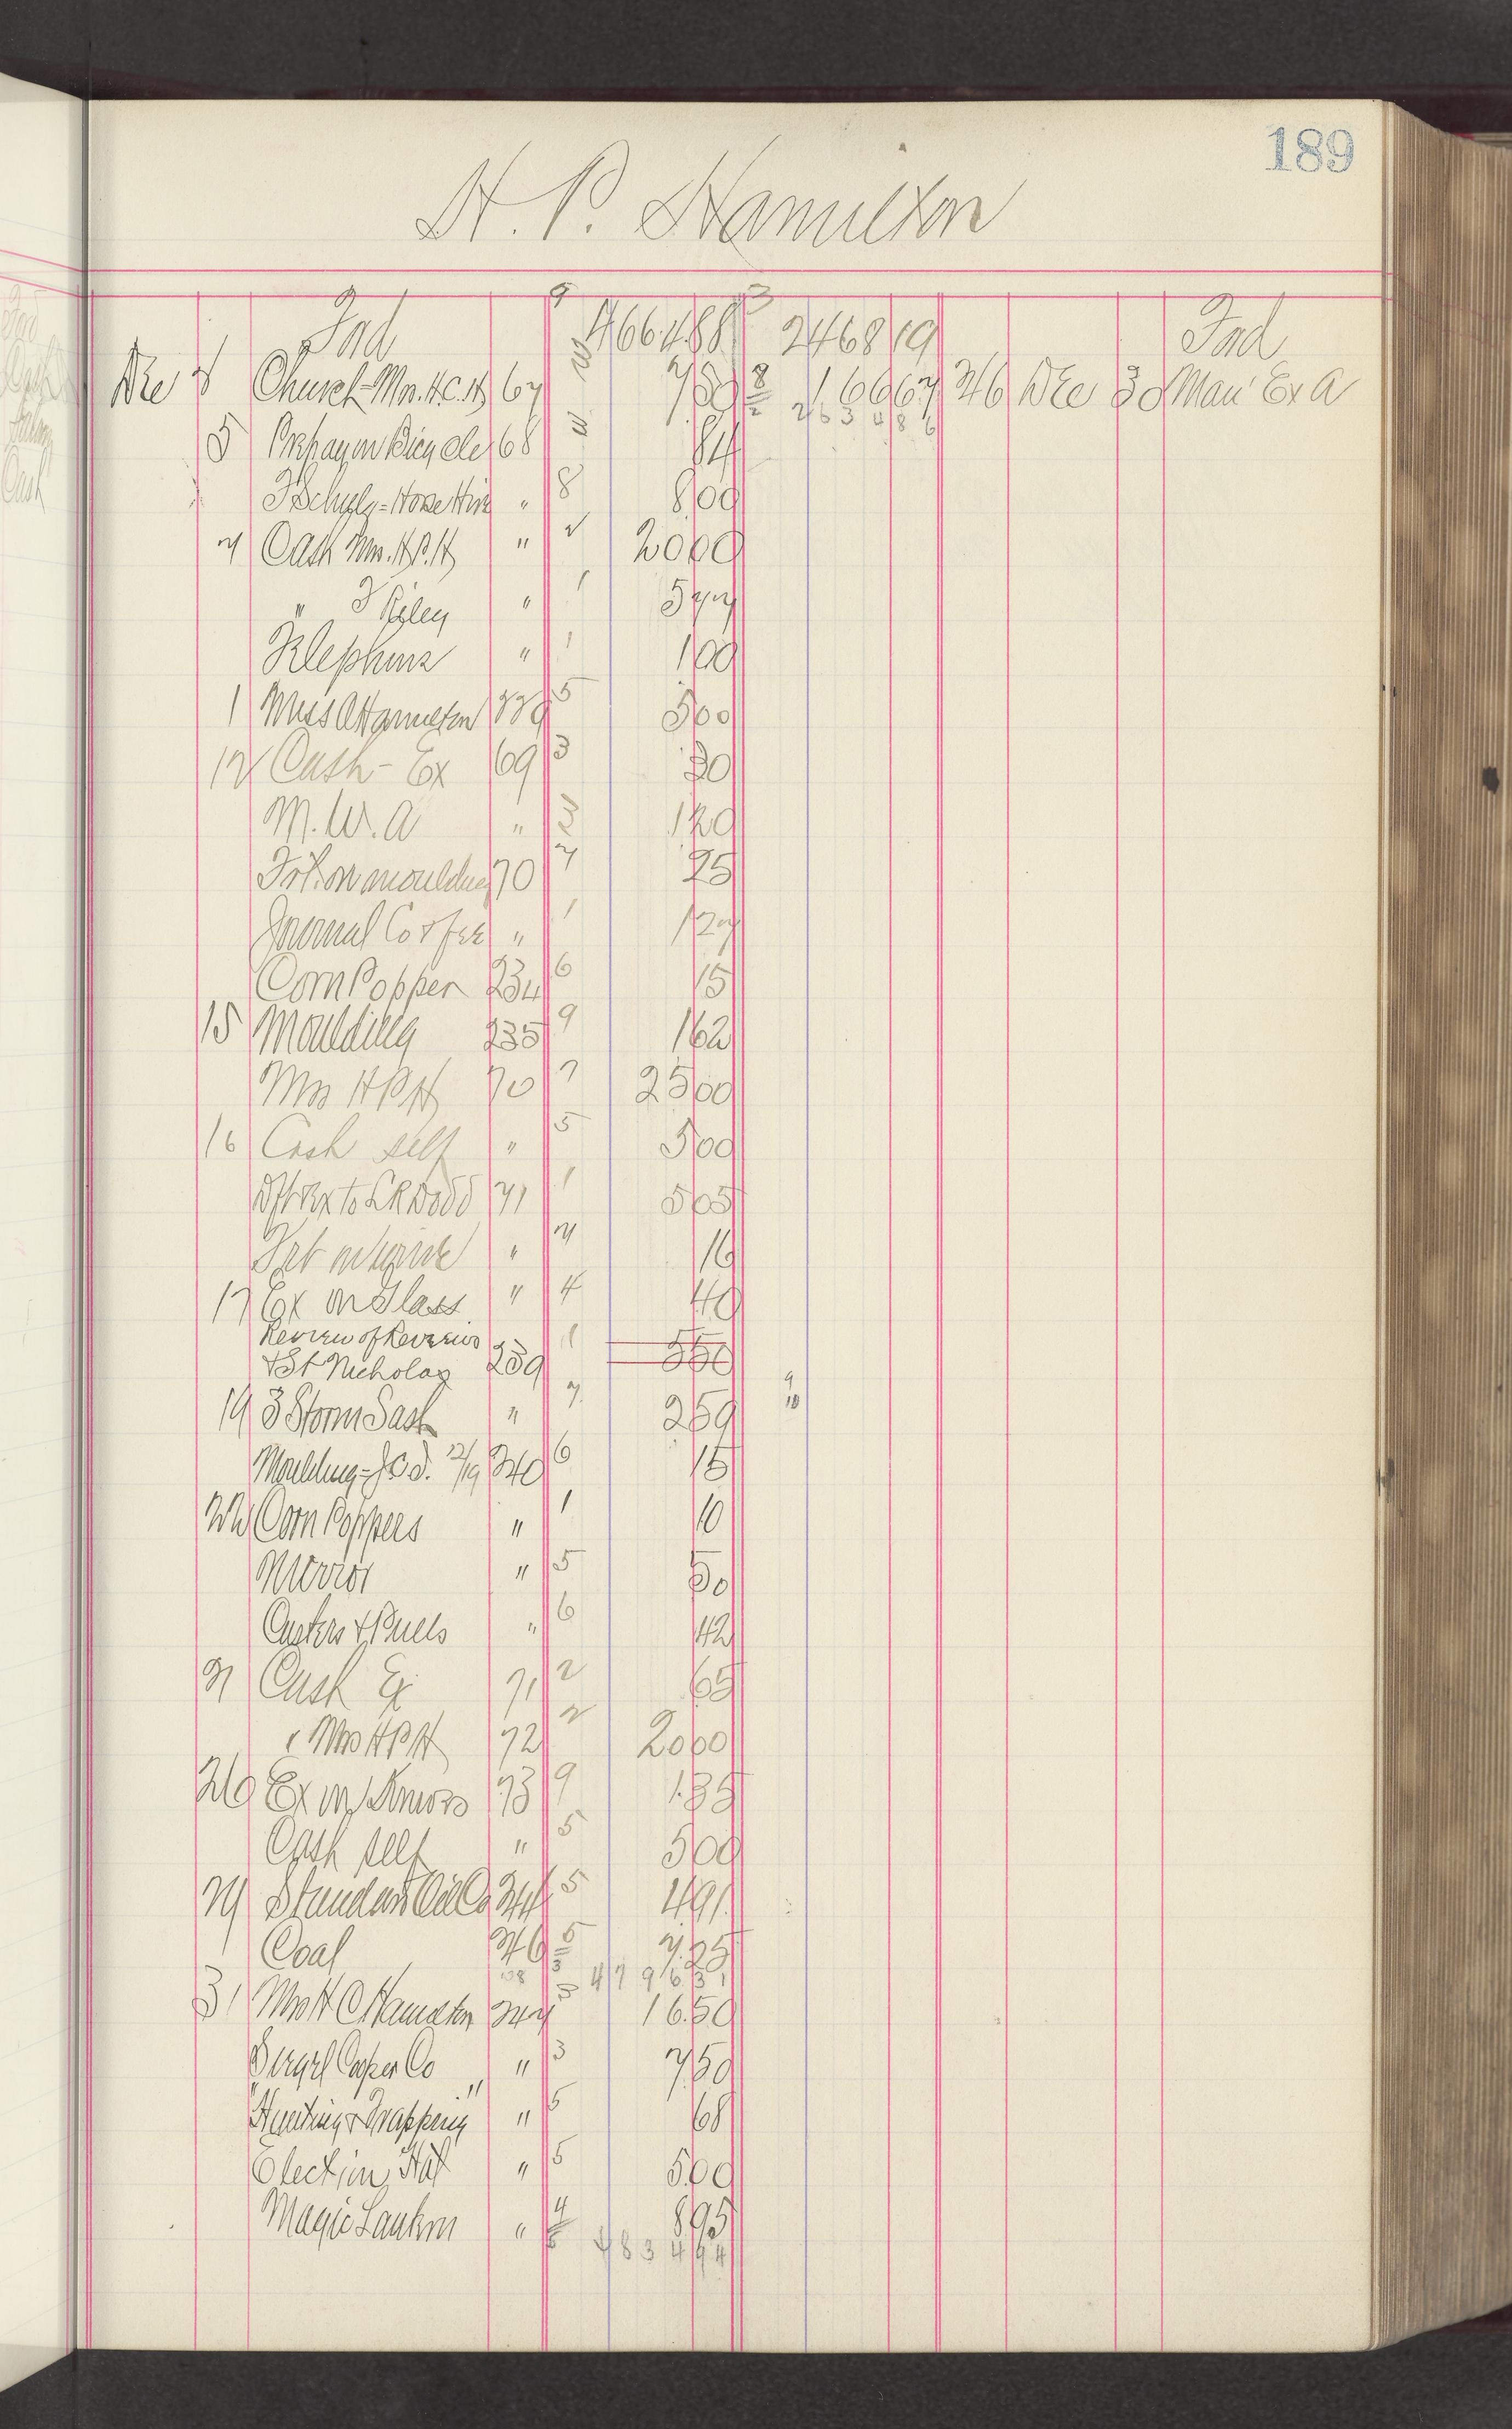 189
H. P. Hamilton
Fwd 466488 246819 Fwd
Dec Church Mrs. H.C.H. 67 16667 246 Dec 30 Man Ex a
5 Bicycle 68 84
Horse Hire " 8 800
7 Cash Mrs. H.P.H " 2 2000
" J Riley " 1 577
Telephone " 1 100
1 Miss A Hamilton 239 5 500
12 Cash - Ex 69 3 30
M. W. A " 3 120
Frt. on moulding 70 7 25
Journal Co " 1 127
Corn Popper 234 6 15
15 Moulding 235 9 162
Mrs H P H 70 7 2500
16 Cash self " 5 500
71 1 505
Frt " 7 16
17 Ex on Glass " 4 40
Review of Reviews 1
& St Nicholas 239 550
19 3 Storm Sash " 7 259
Moulding 12/19 240 6 15
22 Corn Poppers " 1 10
Mirror " 5 50
Casters & Pulls " 6 42
21 Cash Ex 71 2 65
" Mrs H P H 72 2 2000
26 Ex on 73 9 189
Cash self " 5 500
29 Standard Oil Co 244 5 491
Coal 246 5 725
479631
31 Mrs H C Hamilton 247 5 1650
Co " 3 750
Hunting & Trapping " 5 68
Election Hat " 5 500
Magic Lantern " 4 895
483494